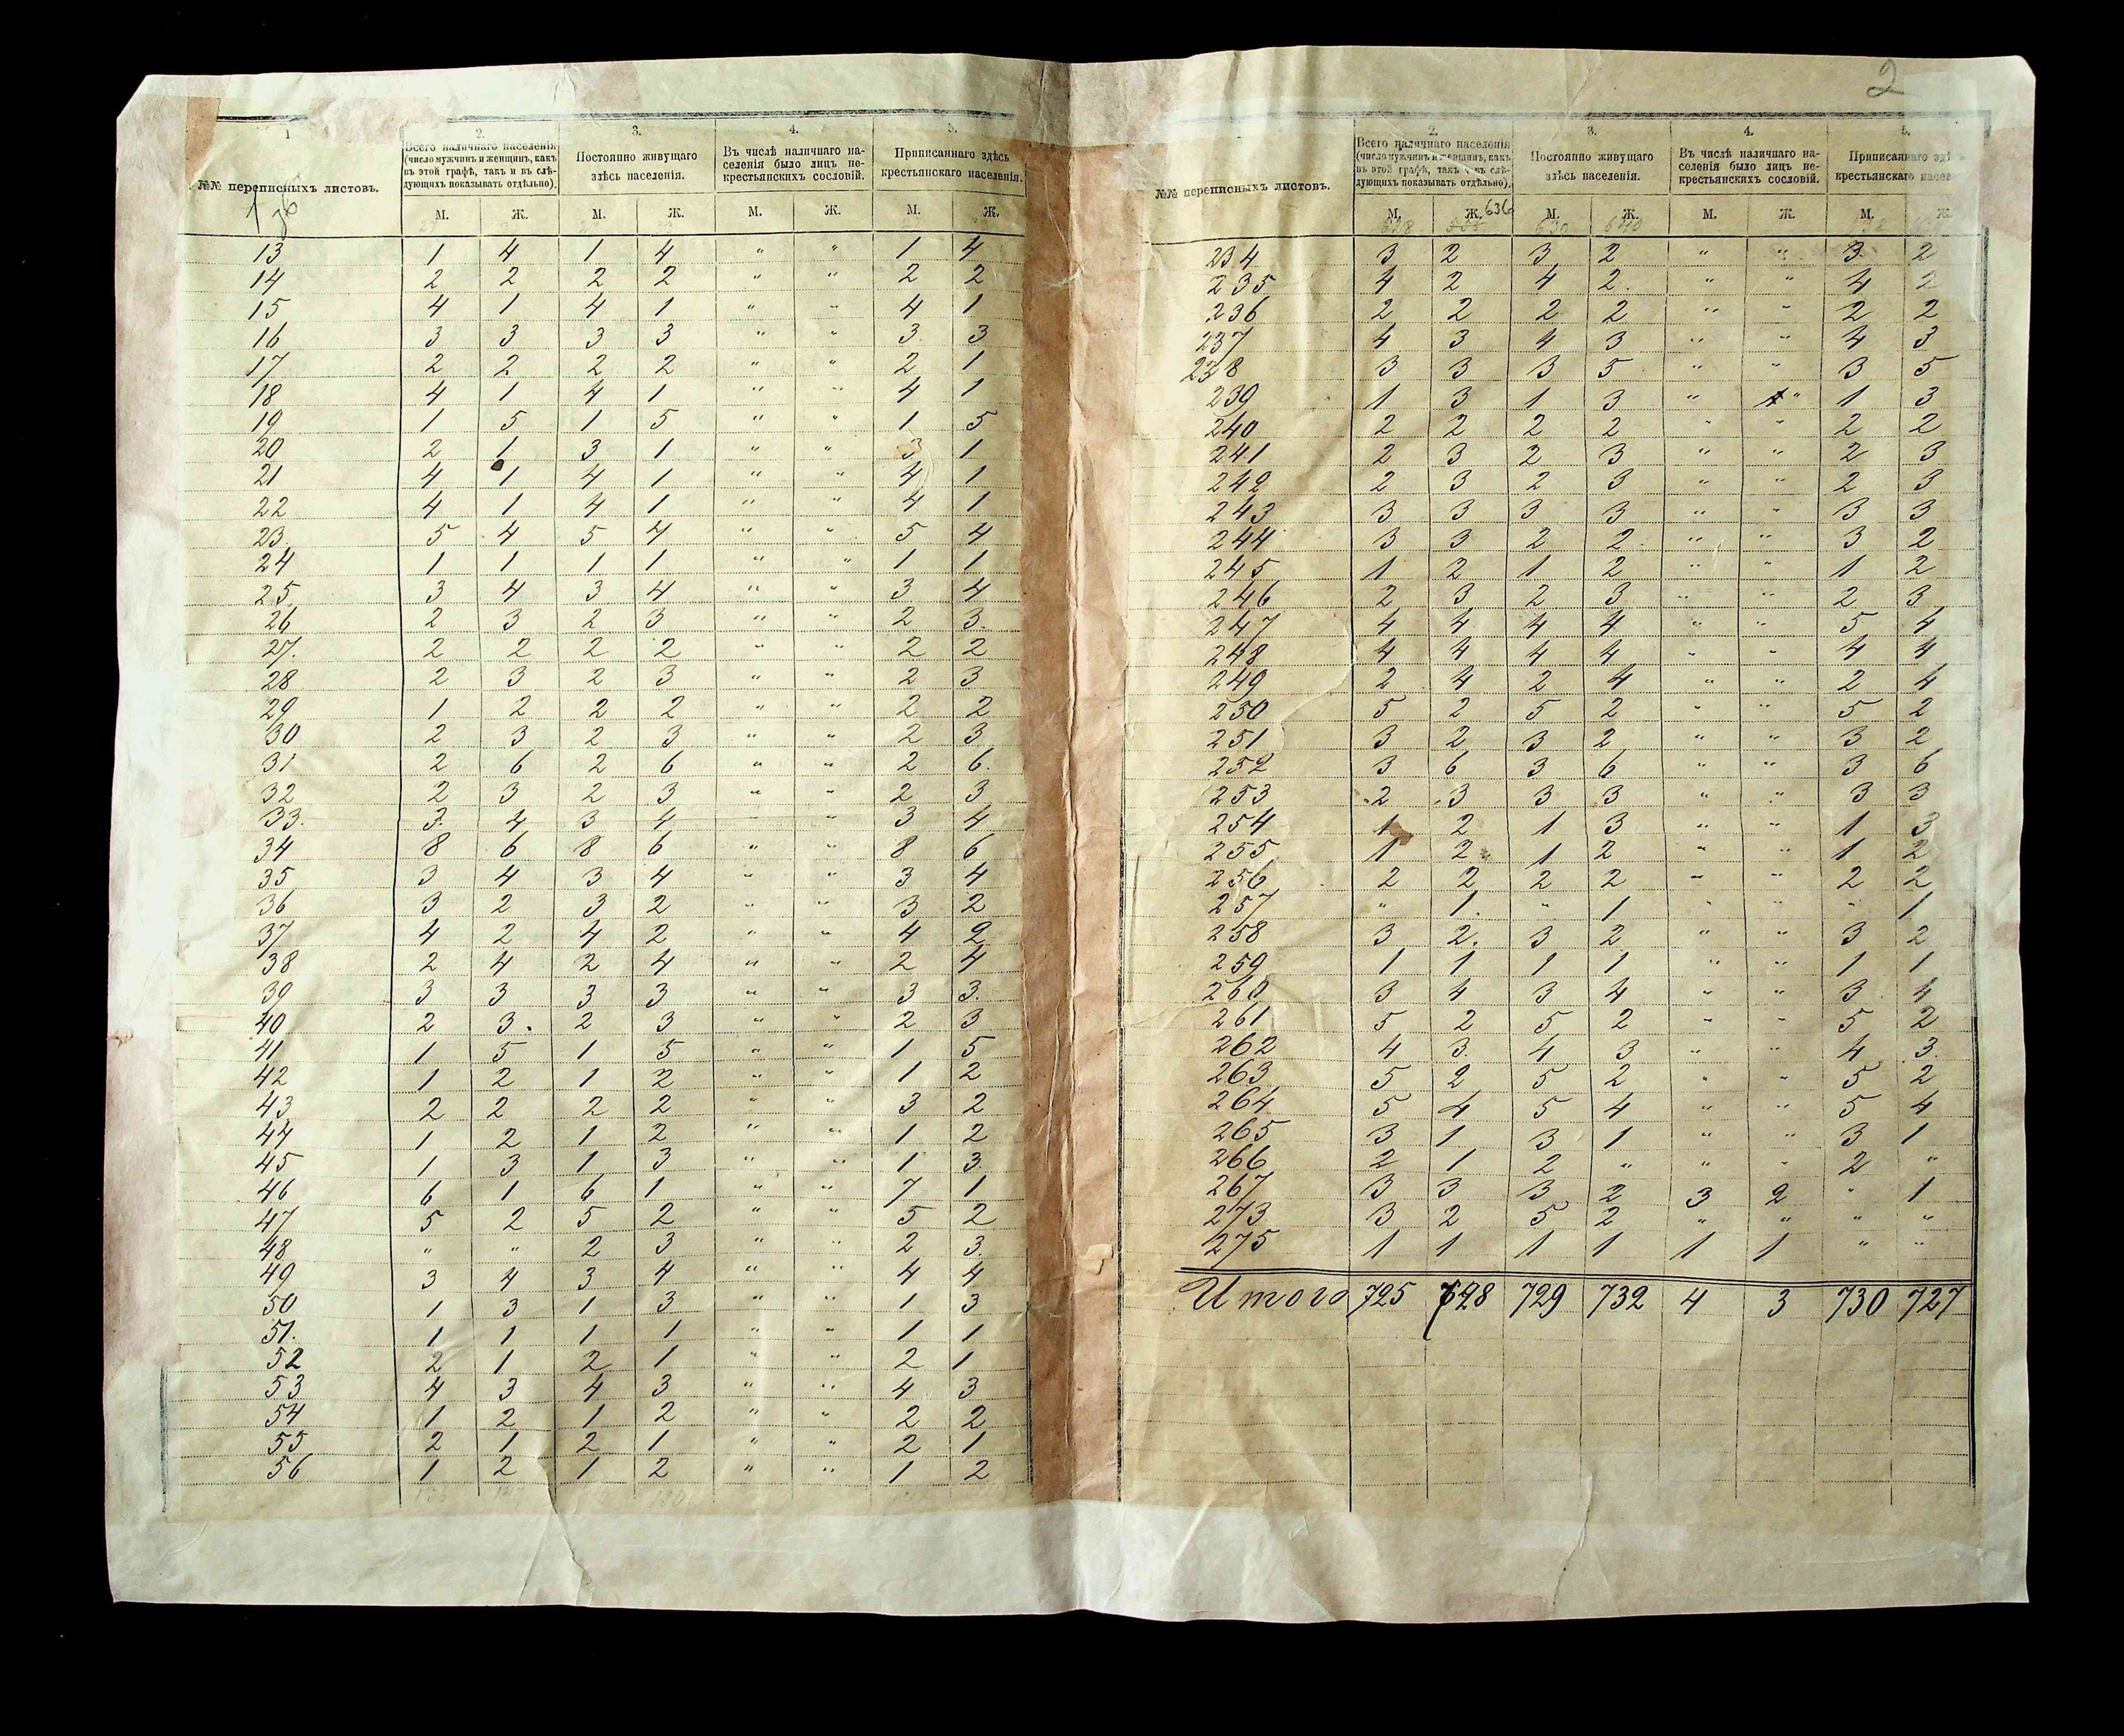 2
1 2. 3. 4. 5.
№№ переписныхъ листовъ. Всего наличнаго населенія (число мужчинъ и женщинъ, какъ въ этой графѣ, такъ и въ слѣдующихъ показывать отдѣльно). Постоянно живущаго здѣсь населенія. Въ числѣ наличнаго населенія было лицъ некрестьянскихъ сословій. Приписаннаго здѣсь крестьянскаго населенія.
М. Ж. М. Ж. М. Ж. М. Ж.
13 1 4 1 4 " " 1 4
14 2 2 2 2 " " 2 2
15 4 1 4 1 " " 4 1
16 3 3 3 3 " " 3 3
17 2 2 2 2 " " 2 1
18 4 1 4 1 " " 4 1
19 1 5 1 5 " " 1 5
20 2 1 3 1 " " 3 1
21 4 1 4 1 " " 4 1
22 4 1 4 1 " " 4 1
23. 5 4 5 4 " " 5 4
24 1 1 1 1 " " 1 1
25. 3 4 3 4 " " 3 4
26 2 3 2 3 " " 2 3.
27. 2 2 2 2 " " 2 2
28 2 3 2 3 " " 2 3
29 1 2 2 2 " " 2 2
30 2 3 2 3 " " 2 3
31 2 6 2 6 " " 2 6.
32 2 3 2 3 " " 2 3
33. 3. 4 3 4 " " 3 4
34 8 6 8 6 " " 8 6
35 3 4 3 4 " " 3 4
36 3 2 3 2 " " 3 2
37 4 2 4 2 " " 4 2
38 2 4 2 4 " " 2 4
39 3 3 3 3 " " 3 3.
40 2 3. 2 3 " " 2 3
41 1 5 1 5 " " 1 5
42 1 2 1 2 " " 1 2
43 2 2 2 2 " " 3 2
44 1 2 1 2 " " 1 2
45 1 3 1 3 " " 1 3.
46 6 1 6 1 " " 7 1
47 5 2 5 2 " " 5 2
48 " " 2 3 " " 2 3.
49 3 4 3 4 " " 4 4
50 1 3 1 3 " " 1 3
51. 1 1 1 1 " " 1 1
52 2 1 2 1 " " 2 1
53 4 3 4 3 " " 4 3
54 1 2 1 2 " " 2 2
55 2 1 2 1 " " 2 1
56 1 2 1 2 " " 1 2
2. 3. 4. 5.
№№ переписныхъ листовъ. Всего наличнаго населенія (число мужчинъ и женщинъ, какъ въ этой графѣ, такъ и въ слѣдующихъ показывать отдѣльно). Постоянно живущаго здѣсь населенія. Въ числѣ наличнаго населенія было лицъ некрестьянскихъ сословій. Приписаннаго здѣсь крестьянскаго населенія
М. Ж. 636 М. Ж. М. Ж. М. Ж.
234 3 2 3 2 " " 3. 2
235 4 2 4 2. " " 4 2
236 2 2 2 2 " " 2 2
237 4 3 4 3 " " 4 3
238 3 3 3 5 " " 3 5
239 1 3 1 3 " " 1 3
240 2 2 2 2 " " 2 2
241 2 3 2 3 " " 2 3
242 2 3 2 3 " " 2 3
243 3 3 3 3 " " 3 3
244 3 3 2 2 " " 3 2
245 1 2 1 2 " " 1 2
246 2 3 2 3 " " 2 3
247 4 4 4 4 " " 5 4
248 4 4 4 4 " " 4 4
249 2 4 2 4 " " 2 4
250 5 2 5 2 " " 5 2
251 3 2 3 2 " " 3 2
252 3 6 3 6 " " 3 6
253 2 3 3 3 " " 3 3
254 1 2 1 3 " " 1 3
255 1 2 1 2 " " 1 2
256 2 2 2 2 " " 2 2
257 " 1. " 1 " " " 1
258 3 2. 3 2 " " 3 2
259 1 1 1 1 " " 1 1
260 3 4 3 4 " " 3 4
261 5 2 5 2 " " 5 2
262 4 3. 4 3 " " 4 3.
263 5 2 5 2 " " 5 2
264 5 4 5 4 " " 5 4
265 3 1 3 1 " " 3 1
266 2 1 2 " " " 2 "
267 3 3 3 2 3 2 " 1
273 3 2 5 2 " " " "
275 1 1 1 1 1 1 " "
Итого 725 728 729 732 4 3 730 727